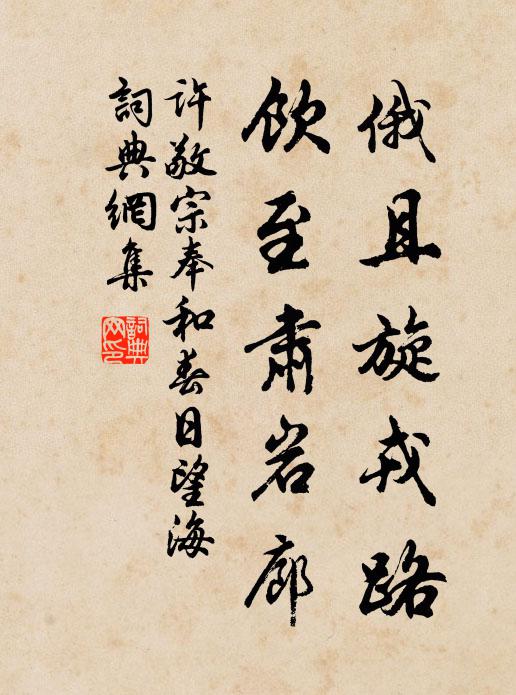 俄且旋戎路
飲至肅岩廊
許敬宗奉和春日望海
詞典網集
詞典网印